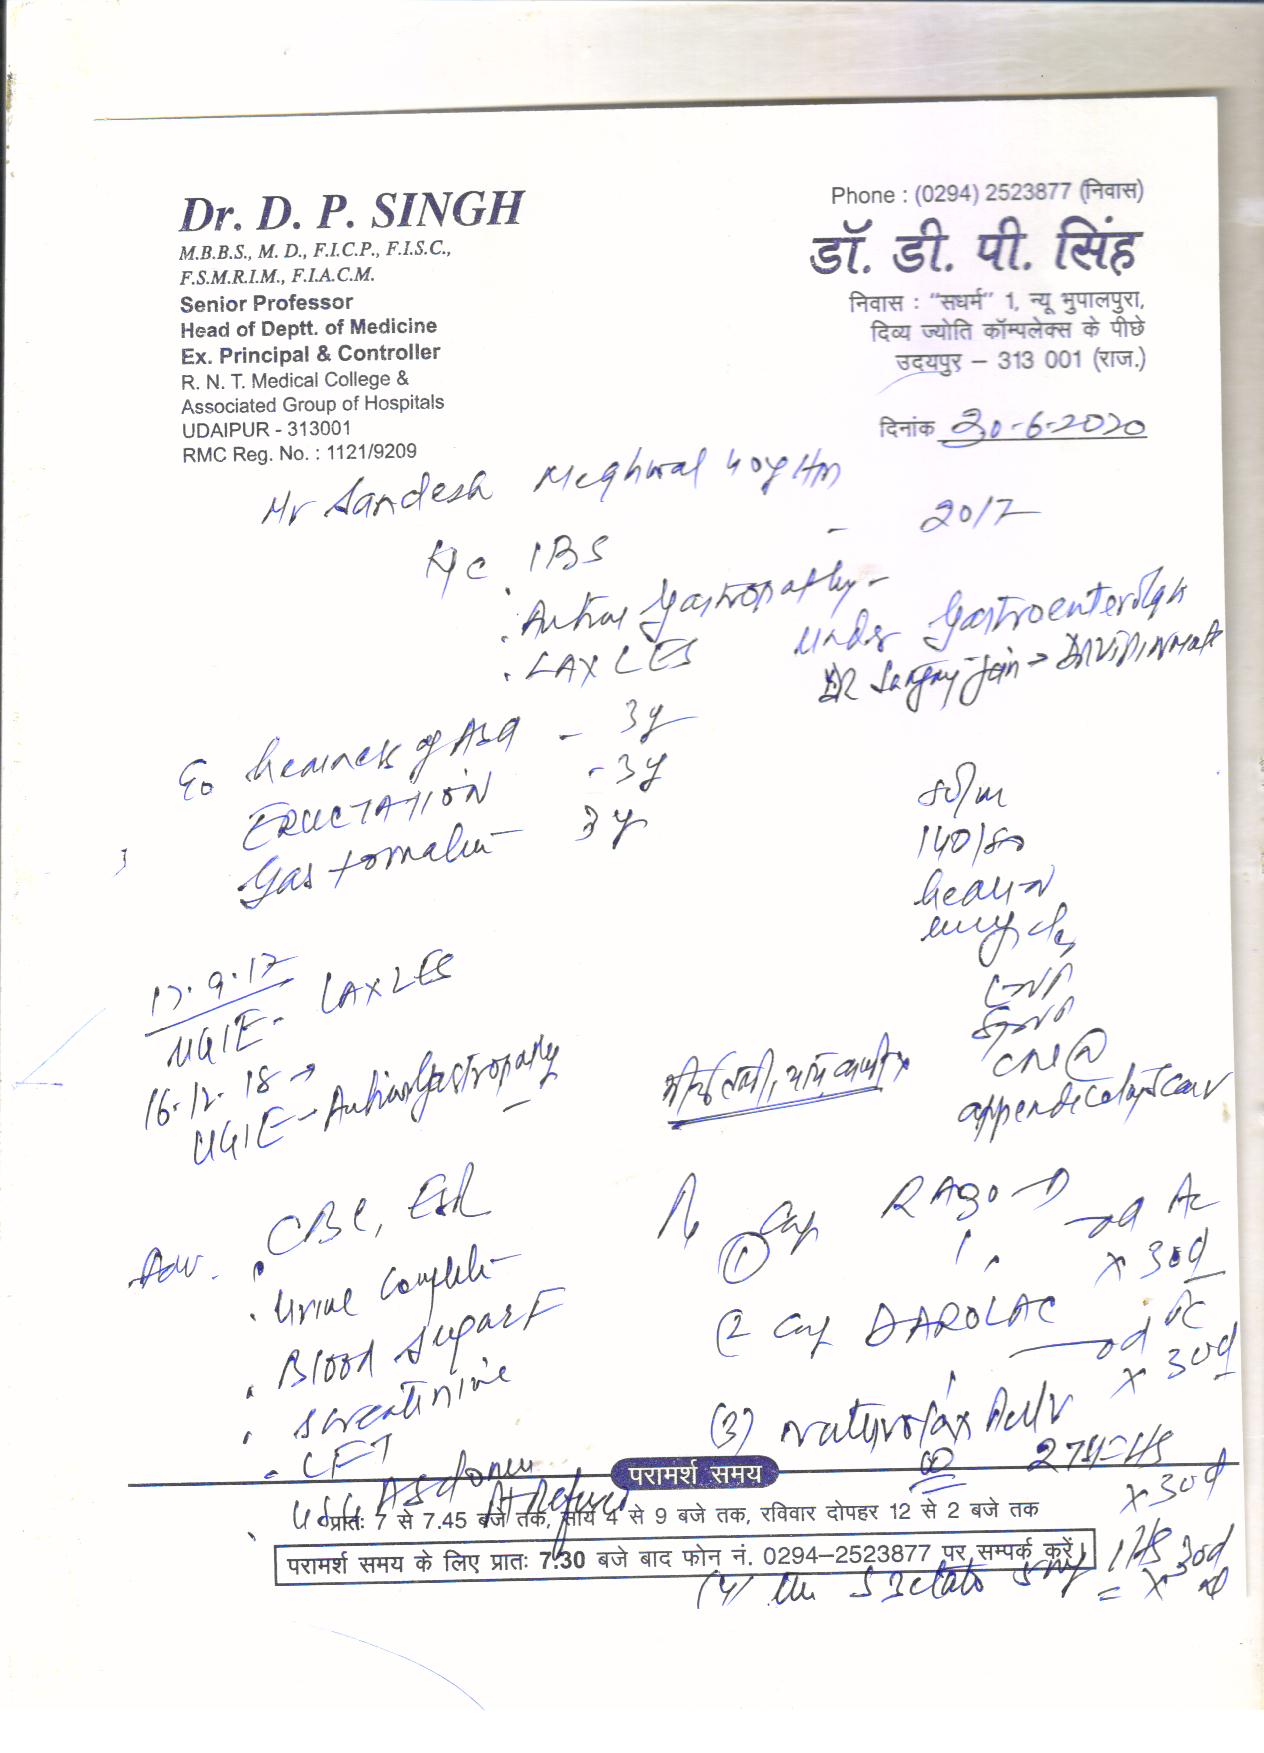 Dr. D. P. SINGH
M.B.B.S., M. D., F.I.C.P., F.I.S.C.,
F.S.M.R.I.M., F.I.A.C.M.
Senior Professor
Head of Deptt. of Medicine
Ex. Principal & Controller
R. N. T. Medical College &
Associated Group of Hospitals
UDAIPUR - 313001
RMC Reg. No. : 1121/9209
Phone : (0294) 2523877 (निवास)
डॉ. डी. पी. सिंह
निवास : "सधर्म" 1, न्यू भुपालपुरा,
दिव्य ज्योति कॉम्पलेक्स के पीछे
उदयपुर – 313 001 (राज.)
दिनांक 30-6-2020
Mr Sandesh Meghwal 40y
K/c IBS - 20/7
Antral gastropathy -
LAX LES
under Gastroenterologist
DR Sanjay Jain
C/o heaviness of Abd - 3y
ERUCTATION - 3y
Gas 3y
80/m
140/80
heart N
CNS
appendicectomy scar
17.9.17
UGIE - LAX LES
16.12.18 →
UGIE - Antral Gastropathy
Adv. CBC, ESR
Urine Complete
Blood Sugar F
S creatinine
LFT
USG Abdomen
Rx (1) Cap RA30 → D od AC
x 30d
(2) Cap DAROLAC od PC
x 30d
(3) Naturolax
2 TSF = HS
x 30d
(4) 1 HS
= x 30d
परामर्श समय
प्रातः 7 से 7.45 बजे तक, सायं 4 से 9 बजे तक, रविवार दोपहर 12 से 2 बजे तक
परामर्श समय के लिए प्रातः 7.30 बजे बाद फोन नं. 0294–2523877 पर सम्पर्क करें।